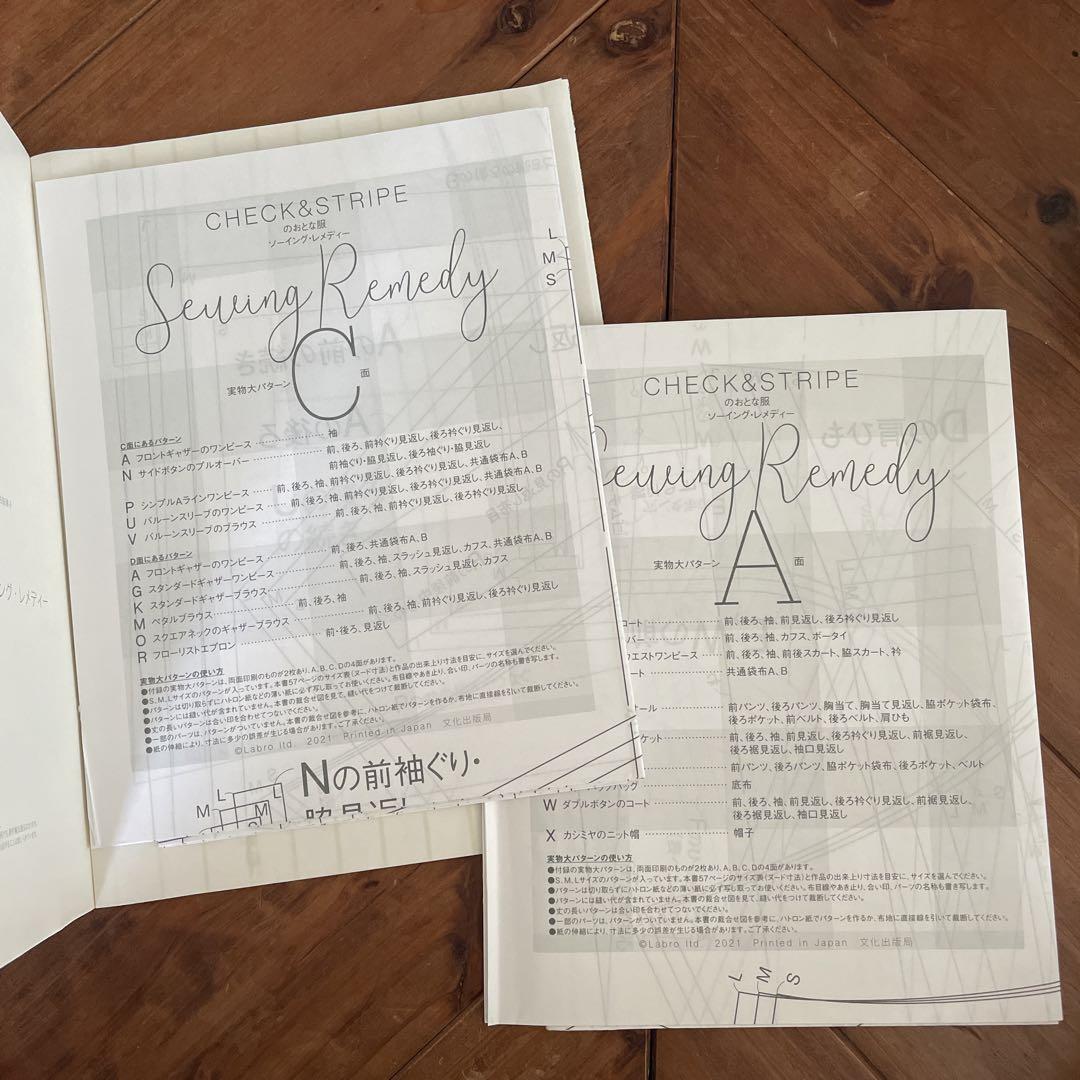 CHECK&STRIPE
のおとな服
ソーイング・レメディー
Sewing Remedy
実物大パターン C 面
C面にあるパターン
A フロントギャザーのワンピース …… 袖
N サイドボタンのプルオーバー …… 前、後ろ、前衿ぐり見返し、後ろ衿ぐり見返し、
前袖ぐり・脇見返し、後ろ袖ぐり・脇見返し
P シンプルAラインワンピース …… 前、後ろ、袖、前衿ぐり見返し、後ろ衿ぐり見返し、共通袋布A、B
U バルーンスリーブのワンピース …… 前、後ろ、袖、前衿ぐり見返し、後ろ衿ぐり見返し、共通袋布A、B
V バルーンスリーブのブラウス …… 前、後ろ、袖、前衿ぐり見返し、後ろ衿ぐり見返し
D面にあるパターン
A フロントギャザーのワンピース …… 前、後ろ、共通袋布A、B
G スタンダードギャザーワンピース …… 前、後ろ、袖、スラッシュ見返し、カフス、共通袋布A、B
K スタンダードギャザーブラウス …… 前、後ろ、袖、スラッシュ見返し、カフス
M ペタルブラウス …… 前、後ろ、袖
O スクエアネックのギャザーブラウス …… 前、後ろ、袖、前衿ぐり見返し、後ろ衿ぐり見返し
R フローリストエプロン …… 前・後ろ、見返し
実物大パターンの使い方
●付録の実物大パターンは、両面印刷のものが2枚あり、A、B、C、Dの4面があります。
●S、M、Lサイズのパターンが入っています。本書57ページのサイズ表(ヌード寸法)と作品の出来上り寸法を目安に、サイズを選んでください。
●パターンは切り取らずにハトロン紙などの薄い紙に必ず写し取ってお使いください。布目線やあき止り、合い印、パーツの名称も書き写します。
●パターンには縫い代が含まれていません。本書の裁合せ図を見て、縫い代をつけて裁断してください。
●丈の長いパターンは合い印を合わせてつないでください。
●一部のパーツは、パターンがついていません。本書の裁合せ図を参考に、ハトロン紙でパターンを作るか、布地に直接線を引いて裁断してください。
●紙の伸縮により、寸法に多少の誤差が生じる場合があります。ご了承ください。
©Labro ltd. 2021 Printed in Japan 文化出版局
L
M
S
Nの前袖ぐり・
脇見返し
CHECK&STRIPE
のおとな服
ソーイング・レメディー
Sewing Remedy
実物大パターン A 面
コート …… 前、後ろ、袖、前見返し、後ろ衿ぐり見返し
バー …… 前、後ろ、袖、カフス、ボータイ
ウエストワンピース …… 前、後ろ、袖、前後スカート、脇スカート、衿
ート …… 共通袋布A、B
ール …… 前パンツ、後ろパンツ、胸当て、胸当て見返し、脇ポケット袋布、
後ろポケット、前ベルト、後ろベルト、肩ひも
ケット …… 前、後ろ、袖、前見返し、後ろ衿ぐり見返し、前裾見返し、
後ろ裾見返し、袖口見返し
前パンツ、後ろパンツ、脇ポケット袋布、後ろポケット、ベルト
バッグ …… 底布
W ダブルボタンのコート …… 前、後ろ、袖、前見返し、後ろ衿ぐり見返し、前裾見返し、
後ろ裾見返し、袖口見返し
X カシミヤのニット帽 …… 帽子
実物大パターンの使い方
●付録の実物大パターンは、両面印刷のものが2枚あり、A、B、C、Dの4面があります。
●S、M、Lサイズのパターンが入っています。本書57ページのサイズ表(ヌード寸法)と作品の出来上り寸法を目安に、サイズを選んでください。
●パターンは切り取らずにハトロン紙などの薄い紙に必ず写し取ってお使いください。布目線やあき止り、合い印、パーツの名称も書き写します。
●パターンには縫い代が含まれていません。本書の裁合せ図を見て、縫い代をつけて裁断してください。
●丈の長いパターンは合い印を合わせてつないでください。
●一部のパーツは、パターンがついていません。本書の裁合せ図を参考に、ハトロン紙でパターンを作るか、布地に直接線を引いて裁断してください。
●紙の伸縮により、寸法に多少の誤差が生じる場合があります。ご了承ください。
©Labro ltd. 2021 Printed in Japan 文化出版局
L M S